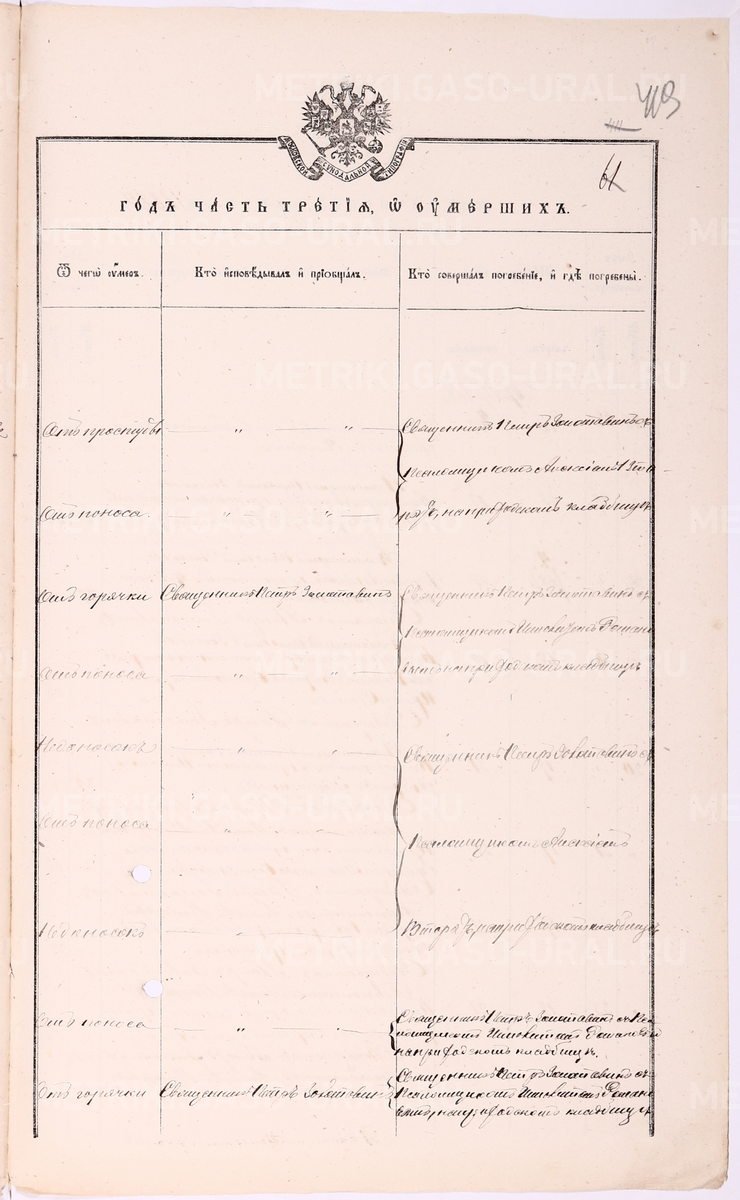 METRIKI.GASO-URAL.RU
413
61
МОСКОВСКОЙ СѴНОДАЛЬНОЙ ТИПОГРАФІИ
ГО́ДЪ ЧА́СТЬ ТРЕ́ТІѦ, Ѡ҆ ОУ҆МЕ́РШИХЪ.
Ѿ чегѡ̀ оу҆́меръ.
Кто̀ и҆сповѣ́дывалъ и҆ прїѡбща́лъ.
Кто̀ соверша́лъ погребе́нїе, и҆ гдѣ̀ погребены̀.
Отъ простуды „ „ Священникъ Петръ Золотавинъ съ
псаломщикомъ Алексіемъ
Отъ поноса. „ „ на приходскомъ кладбищѣ
Отъ горячки Священникъ Петръ Золотавинъ Священникъ Петръ Золотавинъ съ
Псаломщикомъ
Отъ поноса „ „ на приходскомъ кладбищѣ
Недоносокъ „ „ Священникъ Петръ Золотавинъ съ
Отъ поноса „ „ Псаломщикомъ Алексіемъ
Недоносокъ „ „ на приходскомъ кладбищѣ
Отъ поноса „ „ Священникъ Петръ Золотавинъ съ Пса
ломщикомъ
на приходскомъ кладбищѣ.
Отъ горячки Священникъ Петръ Золотавинъ Священникъ Петръ Золотавинъ съ
Псаломщикомъ
на приходскомъ кладбищѣ